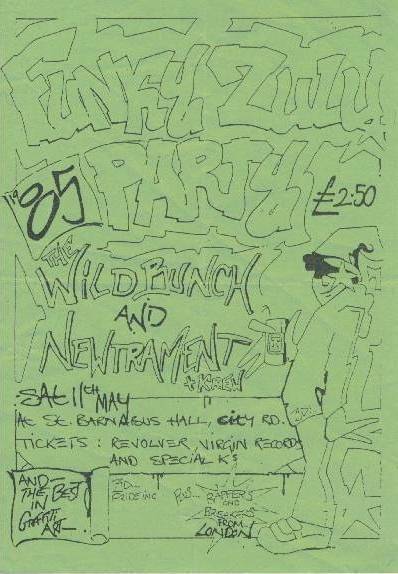 FUNKY ZULU
PARTY
'85
£2.50
THE
WILD BUNCH
AND
NEWTRAMENT
+ KREW
SAT 11TH MAY
AT ST. BARNABUS HALL, CITY RD.
TICKETS : REVOLVER, VIRGIN RECORDS
AND SPECIAL K'S
AND
THE BEST
IN
GRAFFITI
ART..
PLUS... RAPPERS
AND
BREAKERS
FROM
LONDON